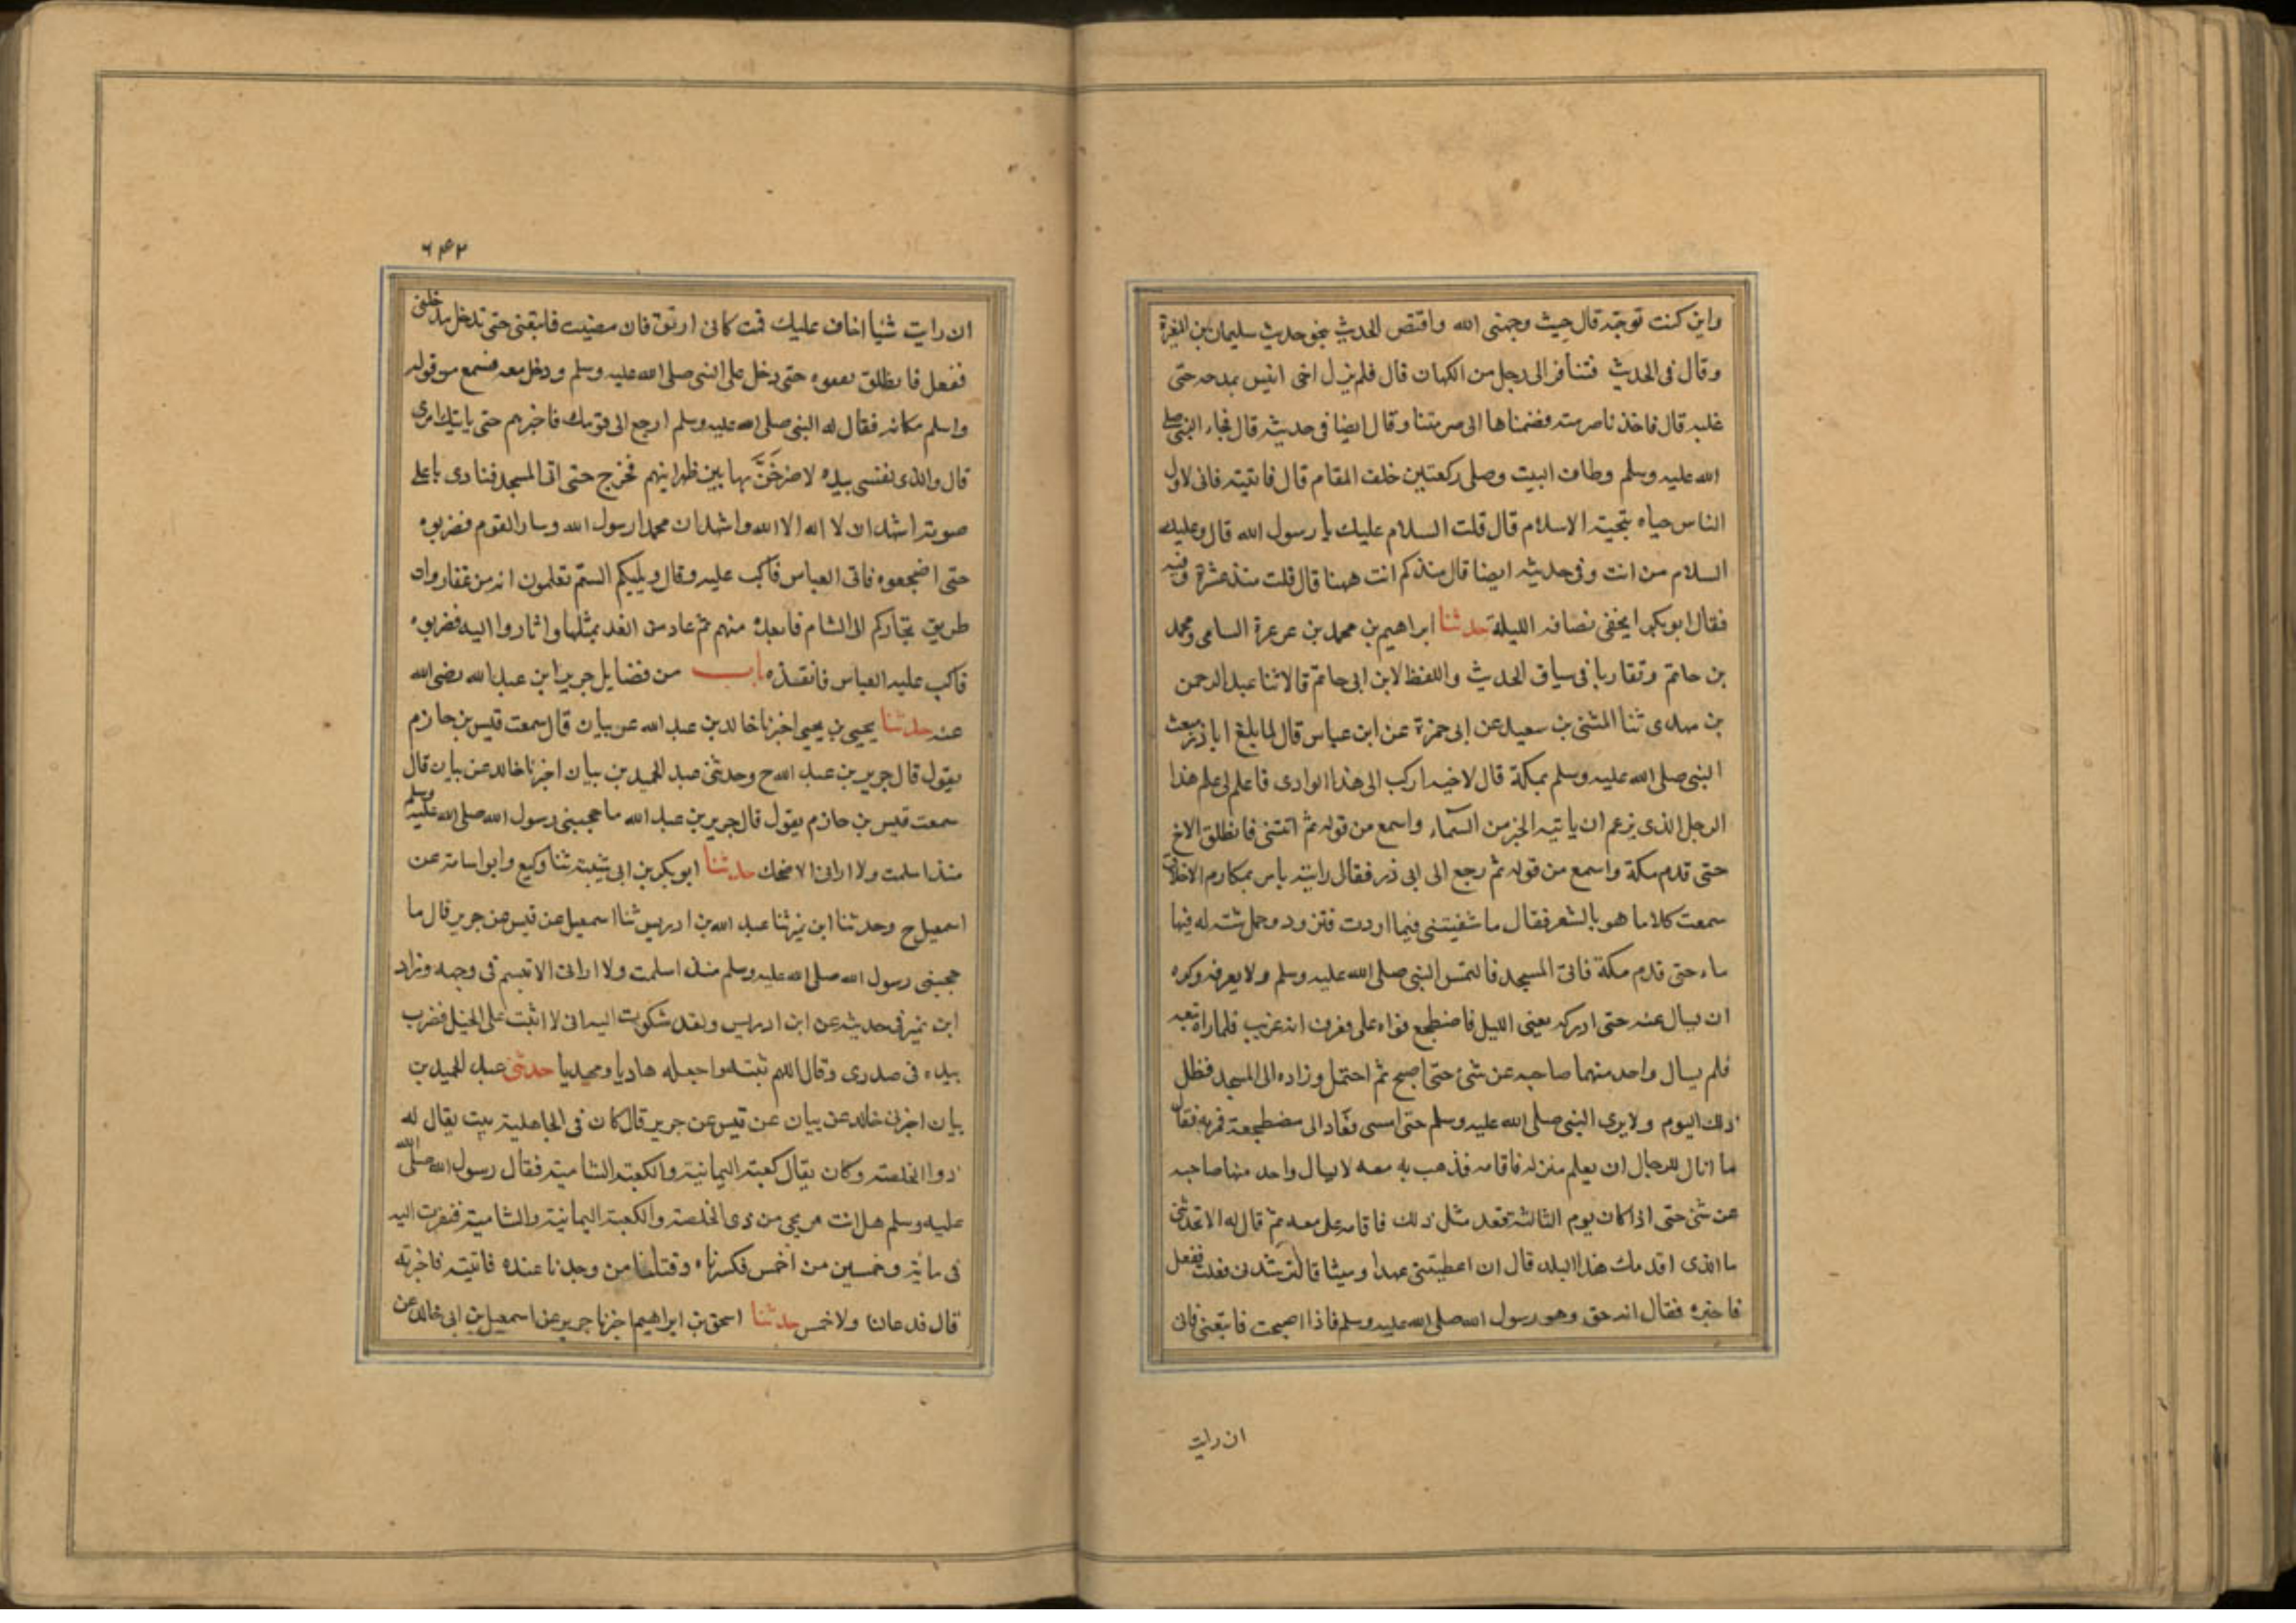 واين كنت توجه قال حيث وجهنى الله واقتص الحديث بنحو حديث سليمان بن المغيرة
وقال فى الحديث فتنافرا الى رجل من الكهان قال فلم يزل اخى انيس يمدحه حتى
غلبه قال فاخذنا صرمته فضمناها الى صرمتنا وقال ايضا فى حديثه قال فجاء النبى صلى
الله عليه وسلم وطاف البيت وصلى ركعتين خلف المقام قال فاتيته فانى لاول
الناس حياه بتحية الاسلام قال قلت السلام عليك يا رسول الله قال وعليك
السلام من انت وفى حديثه ايضا قال منذ كم انت ههنا قال قلت منذ عشرة وفيه
فقال ابو بكر اتحفنى بضيافه الليلة حدثنا ابراهيم بن محمد بن عرعرة السامى ومحمد
بن حاتم وتقاربا فى سياق الحديث واللفظ لابن ابى حاتم قالا ثنا عبد الرحمن
بن مهدى ثنا المثنى بن سعيد عن ابى حمزة عن ابن عباس قال لما بلغ ابا ذر مبعث
النبى صلى الله عليه وسلم بمكة قال لاخيه اركب الى هذا الوادى فاعلم لى علم هذا
الرجل الذى يزعم ان ياتيه الخبر من السماء واسمع من قوله ثم ائتنى فانطلق الاخ
حتى قدم مكة واسمع من قوله ثم رجع الى ابى ذر فقال رايته يامر بمكارم الاخلاق
سمعت كلاما هو بالشعر فقال ما شفيتنى فيما اردت فتزود وحمل شنه له فيها
ماء حتى قدم مكة فاتى المسجد فالتمس النبى صلى الله عليه وسلم ولا يعرفه وكره
ان يسال عنه حتى ادركه يعنى الليل فاضطجع فراه على فعرف انه غريب فلما راه تبعه
فلم يسال واحد منهما صاحبه عن شئ حتى اصبح ثم احتمل وزاده الى المسجد فظل
ذلك اليوم ولا يرى النبى صلى الله عليه وسلم حتى امسى فعاد الى مضطجعه فمر به فقال
ما انال للرجال ان يعلم منزله فاقامه فذهب به معه لا يسال واحد منها صاحبه
عن شئ حتى اذا كان يوم الثالثة فعد مثل ذلك فاقامه على معه ثم قال له الا تحدثنى
ما الذى اقدمك هذا البلد قال ان اعطيتنى عهدا وميثاقا لترشدنى فعلت ففعل
فاخبره فقال انه حق وهو رسول الله صلى الله عليه وسلم فاذا اصبحت فاتبعنى فان
ان رايت
٦٤٢
ان رايت شيا اخاف عليك قمت كانى اريق فان مضيت فاتبعنى حتى تدخل مدخلى
ففعل فانطلق يقفوه حتى دخل على النبى صلى الله عليه وسلم ودخل معه فسمع من قوله
واسلم مكانه فقال له النبى صلى الله عليه وسلم ارجع الى قومك فاخبرهم حتى ياتيك امرى
قال والذى نفسى بيده لاصرخن بها بين ظهرانيهم فخرج حتى اتى المسجد فنادى باعلى
صوته اشهد ان لا اله الا الله واشهد ان محمدا رسول الله وسار القوم فضربوه
حتى اضجعوه فاتى العباس فاكب عليه وقال ويليكم الستم تعلمون انه من غفار وان
طريق تجاركم الى الشام فانقذه منهم ثم عاد من الغد بمثلها واثاروا اليه فضربوه
فاكب عليه العباس فانقذه باب من فضايل جرير ابن عبد الله رضى الله
عنه حدثنا يحيى بن يحيى اخبرنا خالد بن عبد الله عن بيان قال سمعت قيس بن حازم
يقول قال جرير بن عبد الله ح وحدثنى عبد الحميد بن بيان اخبرنا خالد عن بيان قال
سمعت قيس بن حازم يقول قال جرير بن عبد الله ما حجبنى رسول الله صلى الله عليه وسلم
منذ اسلمت ولا ارانى الا ضحك حدثنا ابو بكر بن ابى شيبة ثنا وكيع وابو اسامة عن
اسمعيل ح وحدثنا ابن نمير ثنا عبد الله بن ادريس ثنا اسمعيل عن قيس عن جرير قال ما
حجبنى رسول الله صلى الله عليه وسلم منذ اسلمت ولا ارانى الا تبسم فى وجهه وزاد
ابن نمير فى حديثه عن ابن ادريس ولقد شكوت اليه انى لا اثبت على الخيل فضرب
بيده فى صدرى وقال اللهم ثبته واجعله هاديا ومهديا حدثنى عبد الحميد بن
بيان اخبرنى خالد عن بيان عن قيس عن جرير قال كان فى الجاهلية بيت يقال له
ذوا الخلصة وكان يقال كعبة اليمانية والكعبة الشامية فقال رسول الله صلى الله
عليه وسلم هل انت مريحى من ذى الخلصة والكعبة اليمانية والشامية فنفرت اليه
فى مائة وخمسين من احمس فكسرناه وقتلنا من وجدنا عنده فاتيته فاخبرته
قال فدعا لنا ولاحمس حدثنا اسحق بن ابراهيم اخبرنا جرير عن اسمعيل بن ابى خالد عن